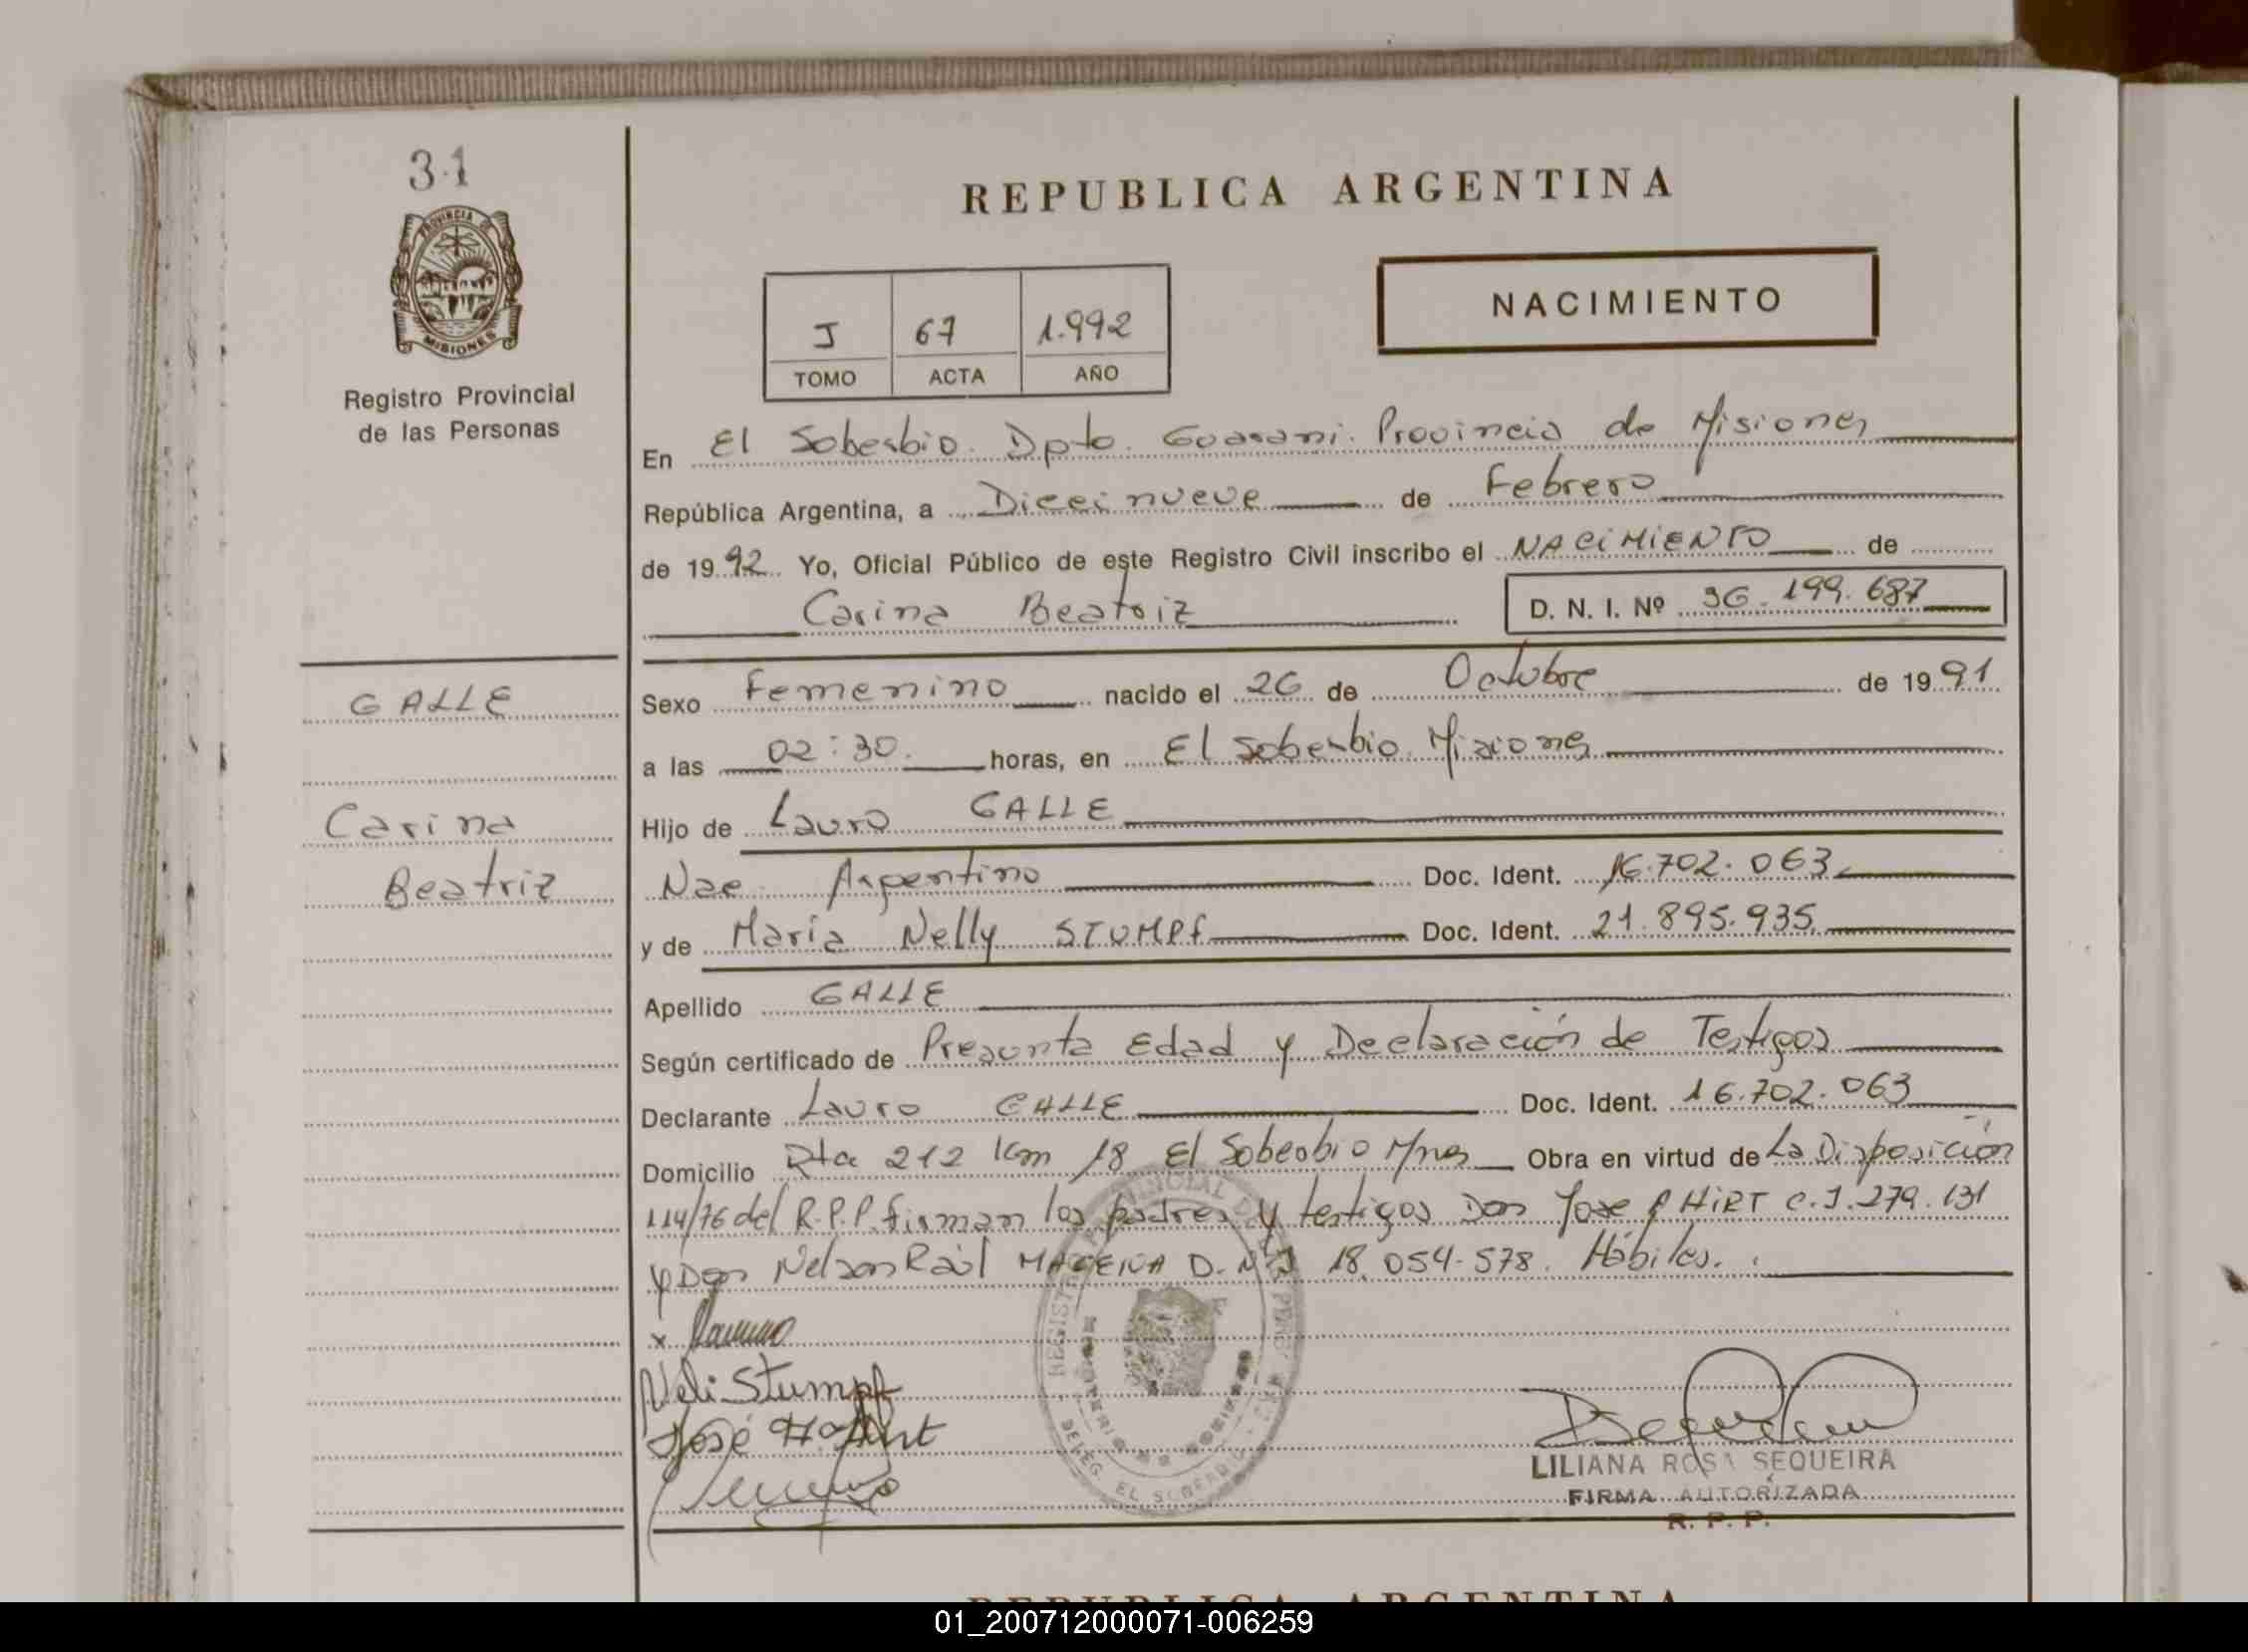 31
PROVINCIA DE
MISIONES
Registro Provincial
de las Personas
REPUBLICA ARGENTINA
NACIMIENTO
J 67 1.992
TOMO ACTA AÑO
En El Soberbio. Dpto. Guarani. Provincia de Misiones
República Argentina, a Dieci nueve de Febrero
de 1992 Yo, Oficial Público de este Registro Civil inscribo el NACIMIENTO de
Carina Beatriz D. N. I. Nº 36.199.687
GALLE
Carina
Beatriz
Sexo Femenino nacido el 26 de Octubre de 1991
a las 02:30. horas, en El Soberbio. Misiones
Hijo de Lauro GALLE
Nac. Argentino Doc. Ident. 16.702.063
y de María Nelly STUMPf Doc. Ident. 21.895.935
Apellido GALLE
Según certificado de Presunta Edad y Declaración de Testigos
Declarante Lauro GALLE Doc. Ident. 16.702.063
Domicilio Rta 212 Km 18 El Soberbio Mnes Obra en virtud de La Disposición
114/76 del R.P.P. firman los padres y testigos Don Jose HIRT C.I. 279.131
y Don Nelson Raúl D.N.I 18.054.578. Hábiles.
x
Neli Stumpf
José H. Hirt
LILIANA ROSA SEQUEIRA
FIRMA AUTORIZADA
R. P. P.
REGISTRO PROVINCIAL DE LAS PERSONAS
DELEG. EL SOBERBIO
REPUBLICA ARGENTINA
01_200712000071-006259